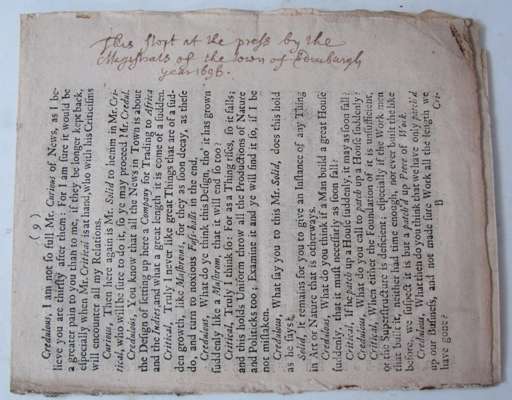 This stopt at the press by the
Magistrats of the town of Edinburgh
year 1696.
( 9 )
Credulous, I am not ſo full Mr. Curious of News, as I be-
lieve you are thirſty after them: For I am ſure it would be
a greater pain to you than to me, if they be longer kept back,
eſpecially when Mr. Critical is at hand, who with his Criticiſms
will encounter all my Relations.
Curious, Then here again is Mr. Solid to hemm in Mr. Cri-
tical, who will be ſure to do it, ſo ye may proceed Mr. Credul.
Credulous, You know that all the News in Town is about
the Deſign of ſetting up here a Company for Trading to Africa
and the Indies and what a great length it is come of a ſudden.
Critical, Truly I never like great Things that are of a ſud-
den growth, like Muſhroms, for they as ſoon decay, as theſe
do, and turn to noxious Fuſs-balls in the end.
Credulous, What do ye think this Deſign, tho' it has grown
ſuddenly like a Muſhrom, that it will end ſo too?
Critical, Truly I think ſo: For as a Thing riſes, ſo it falls;
and this holds Uniform throw all the Productions of Nature
and Politicks too; Examine it and ye will find it ſo, if I be
not miſtaken.
Credulous, What ſay you to this Mr. Solid, does this hold
as he ſays?
Solid, It remains for you to give an Inſtance of any Thing
in Art or Nature that is otherways.
Credulous, What do you think if a Man build a great Houſe
ſuddenly, that it neceſſarly as ſoon fall?
Critical, If he patch up a Houſe ſuddenly, it may as ſoon fall.
Credulous, What do you call to patch up a Houſe ſuddenly?
Critical, When either the Foundation of it is unſufficient,
or the Superſtructure is deficient; eſpecially if the Work men
that built it, neither had time enough, nor ever built the like
before, we ſuſpect it is but a patch'd up Piece of Work.
Credulous, What then do you think that we have only patch'd
up our Buſineſs, and not made ſure Work all the length we
have gone?
B
Cri-